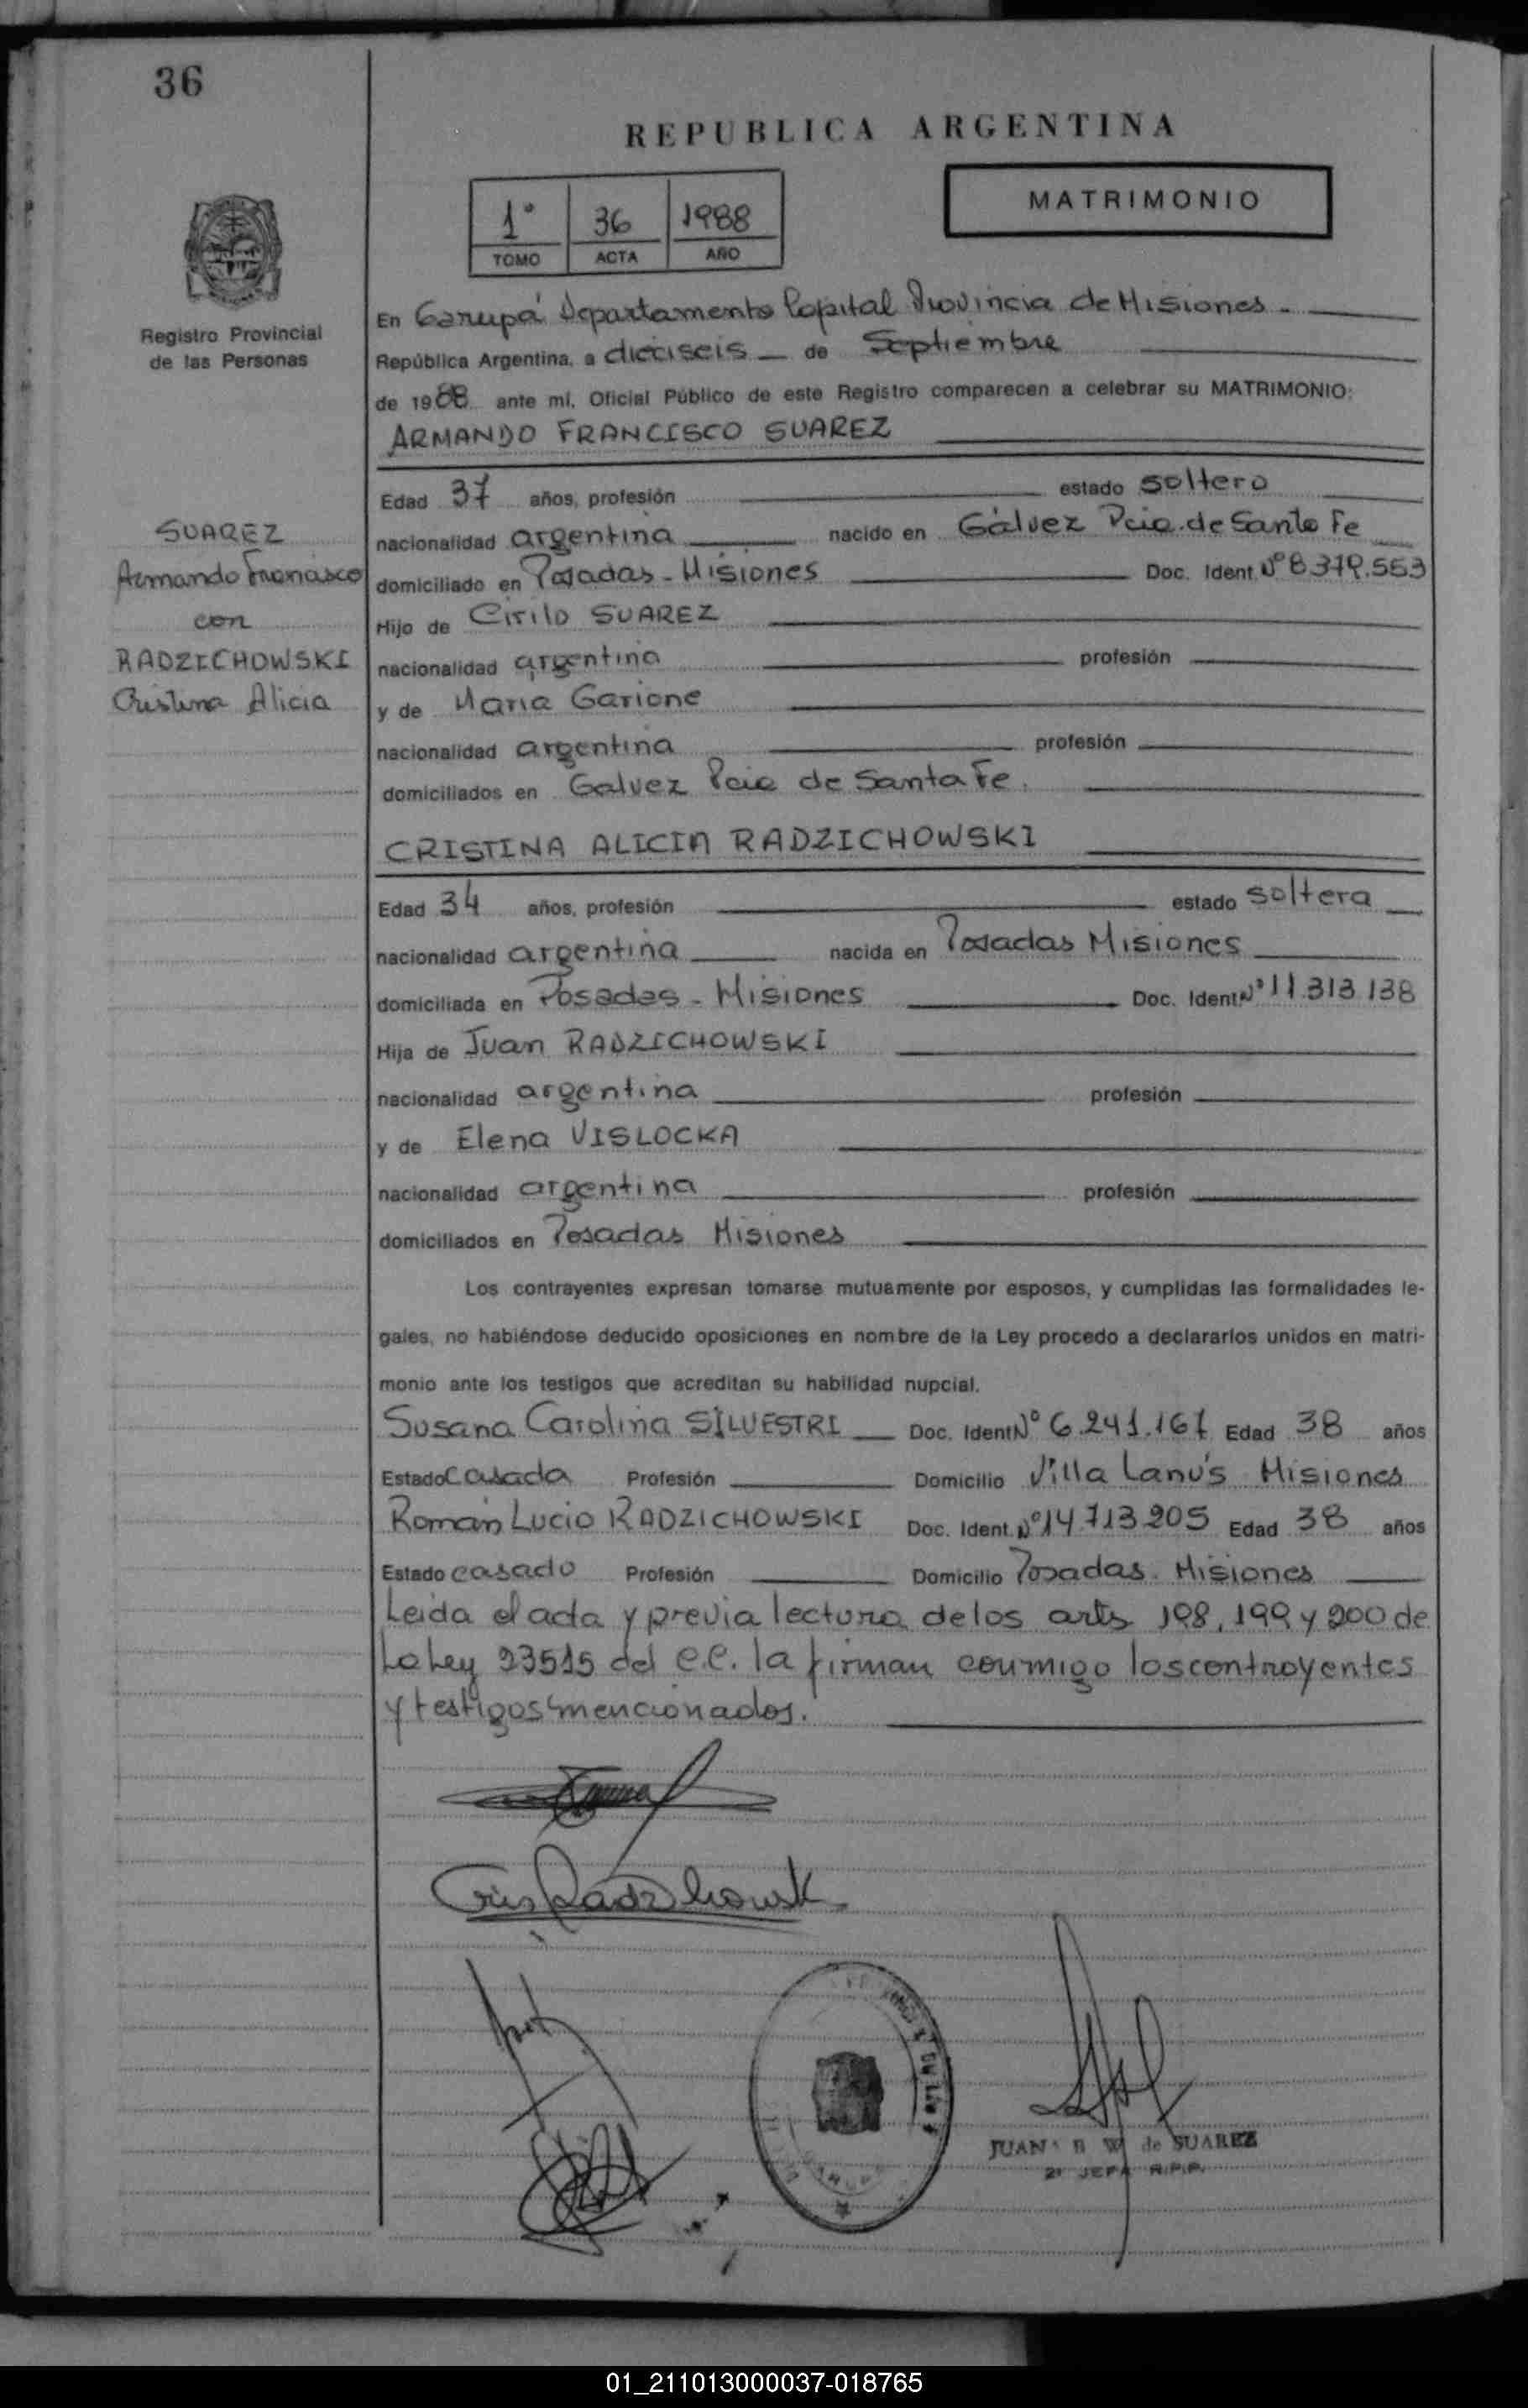 36
REPUBLICA ARGENTINA
1° 36 1988
TOMO ACTA AÑO
MATRIMONIO
Registro Provincial
de las Personas
En Garupá Departamento Capital Provincia de Misiones.
República Argentina, a dieciseis de Septiembre
de 1988 ante mí, Oficial Público de este Registro comparecen a celebrar su MATRIMONIO:
ARMANDO FRANCISCO SUAREZ
Edad 37 años, profesión estado soltero
SUAREZ
Armando Francisco
con
RADZICHOWSKI
Cristina Alicia
nacionalidad argentina nacido en Gálvez Pcia. de Santa Fe
domiciliado en Posadas - Misiones Doc. Ident. Nº 8.379.553
Hijo de Cirilo SUAREZ
nacionalidad argentina profesión
y de Maria Garione
nacionalidad argentina profesión
domiciliados en Galvez Pcia de Santa Fe.
CRISTINA ALICIA RADZICHOWSKI
Edad 34 años, profesión estado soltera
nacionalidad argentina nacida en Posadas Misiones
domiciliada en Posadas - Misiones Doc. Ident Nº 11.313.138
Hija de Juan RADZICHOWSKI
nacionalidad argentina profesión
y de Elena VISLOCKA
nacionalidad argentina profesión
domiciliados en Posadas Misiones
Los contrayentes expresan tomarse mutuamente por esposos, y cumplidas las formalidades le-
gales, no habiéndose deducido oposiciones en nombre de la Ley procedo a declararlos unidos en matri-
monio ante los testigos que acreditan su habilidad nupcial.
Susana Carolina SILVESTRI Doc. Ident Nº 6.241.167 Edad 38 años
Estado Casada Profesión Domicilio Villa Lanús Misiones
Román Lucio RADZICHOWSKI Doc. Ident. Nº 14.713.205 Edad 38 años
Estado casado Profesión Domicilio Posadas. Misiones
Leida el acta y previa lectura de los arts 198, 199 y 200 de
La Ley 23515 del C.C. la firman conmigo los contrayentes
y testigos mencionados.
Cris Radzichowsk
JUANA B W de SUAREZ
2ª JEFA R.P.P.
01_211013000037-018765